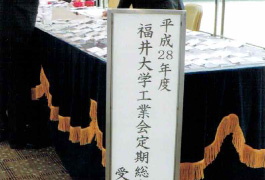 平成28年度
福井大学工業会定期総
受